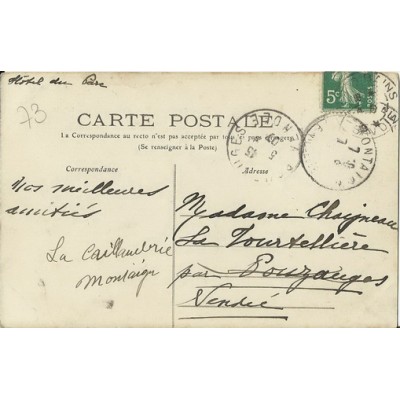 Hôtel du Parc
73
5c
CARTE POSTALE
La Correspondance au recto n'est pas acceptée par tous
(Se renseigner à la Poste)
Correspondance
Adresse
Nos meilleures
amitiés
La Caillauderie
Montaigu
Madame Chaigneau
La Tourtellière
par Pouzauges
Vendée